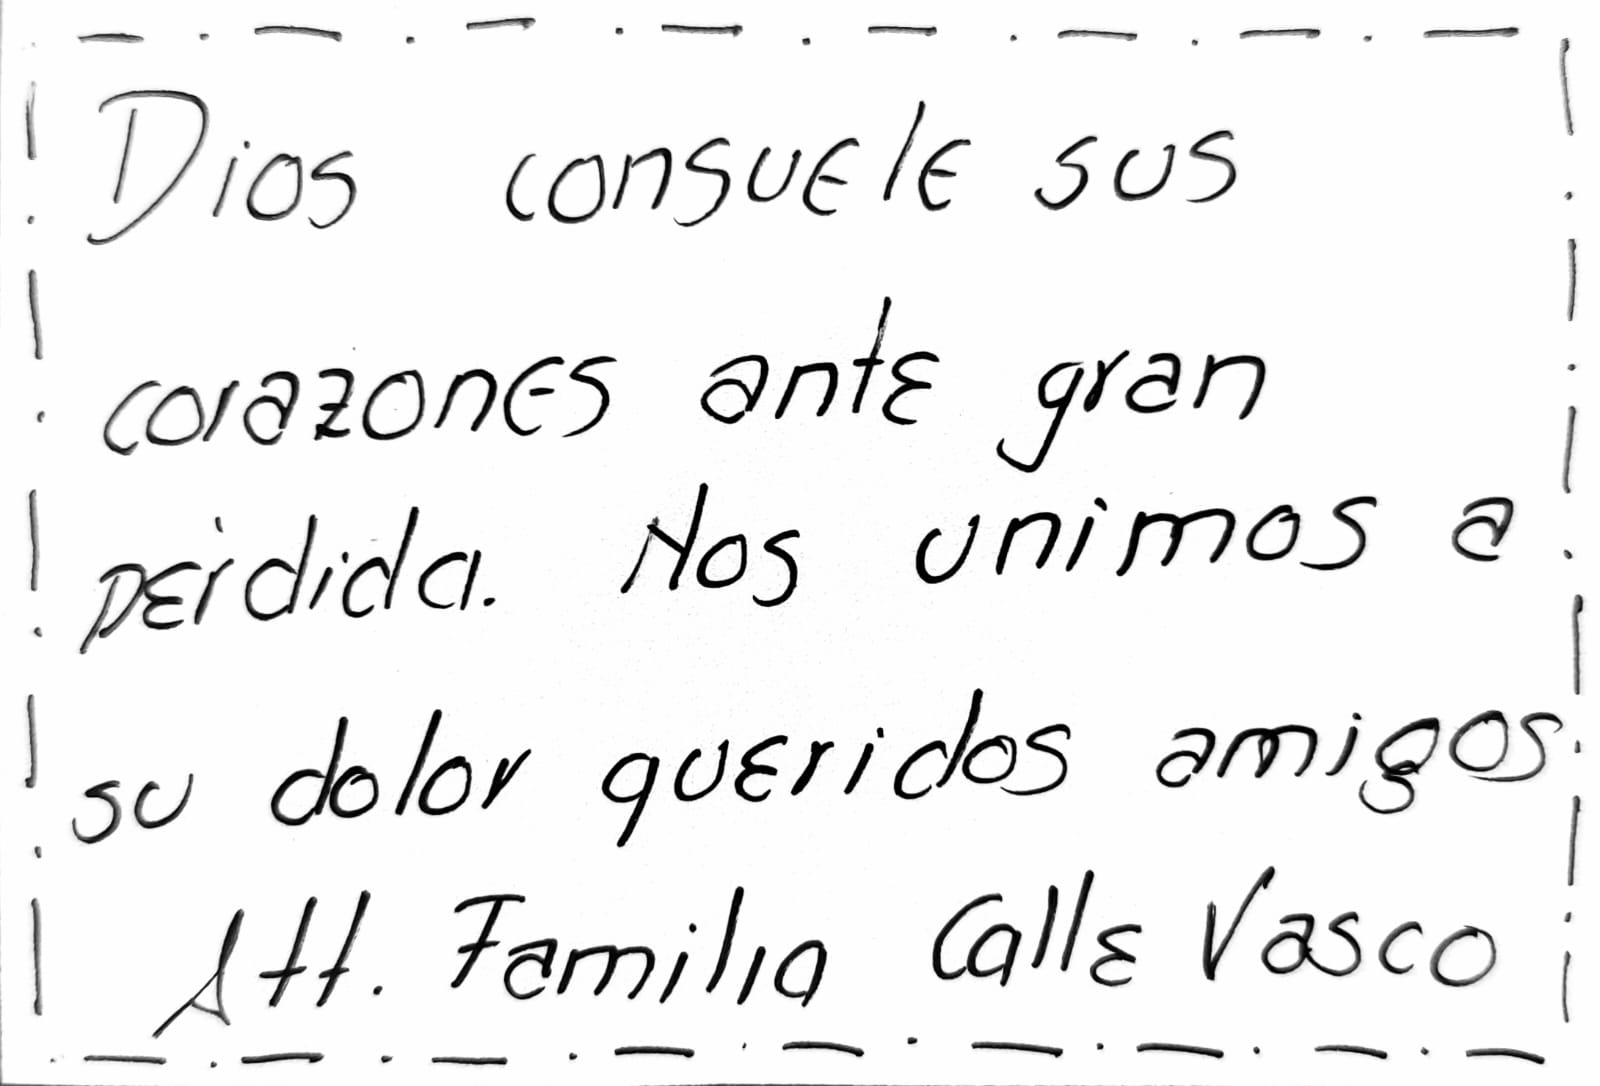 Dios consuele sus
corazones ante gran
pérdida. Nos unimos a
su dolor queridos amigos
Att. Familia Calle Vasco